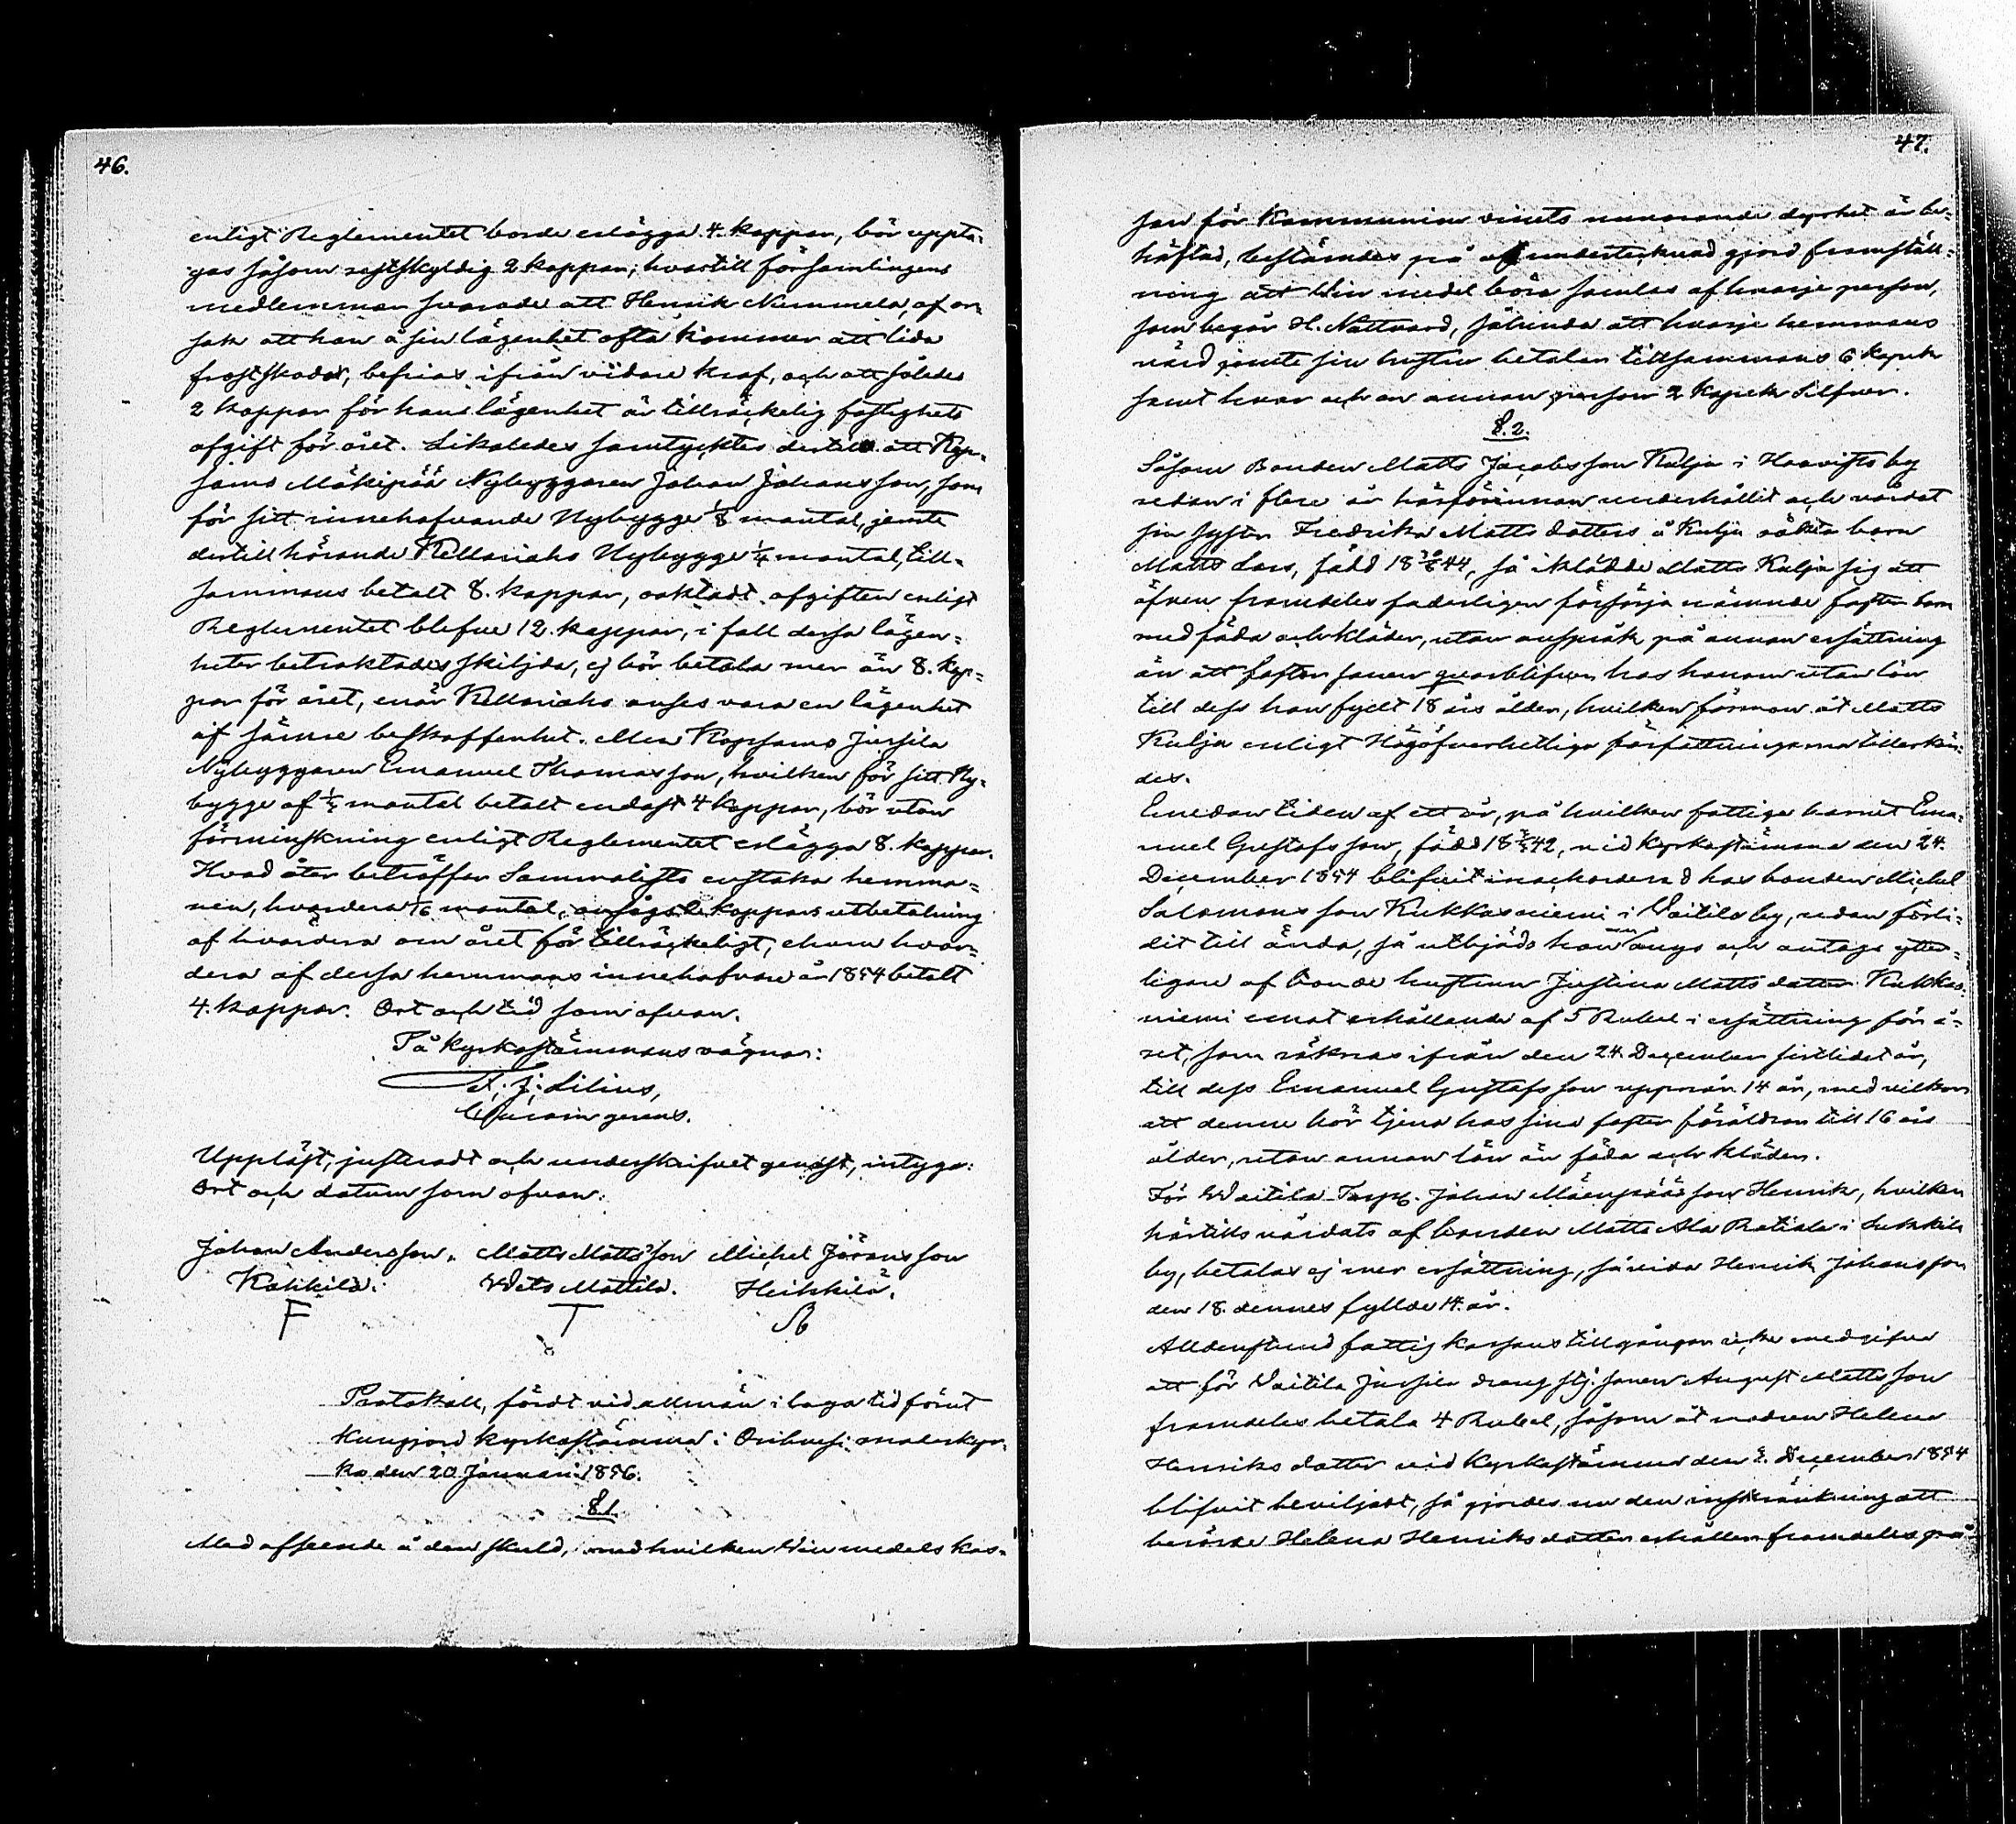 46.
enligt Reglementet borde erlägga 4. kappar, bör uppta-
gas såsom restskyldig 2 kappar; hvartill församlingens
medlemmar svarade att Henrik Nummela, af or-
sak att han å sin lägenhet ofta kommer att lida
frostskador, befrias ifrån vidare kraf, och att således
2 kappar för hans lägenhet är tillräckelig fastighets
afgift för året. Likaledes samtycktes dertill att Kop-
samo Mäkipää Nybyggaren Johan Johansson, som
för sitt innehafvande Nybygge 1/8 mantal, jemte
dertill hörande Kellariaho Nybygge 1/4 mantal, till-
sammans betalt 8. kappar, oaktadt afgiften enligt
Reglementet blefve 12. kappar, i fall dessa lägen-
heter betraktades skiljda, ej bör betala mer än 8. kap-
par för året, enär Kellariaho anses vara en lägenhet
af sämre beskaffenhet. Men Kopsamo Jussila
Nybyggaren Emanuel Thomasson, hvilken för sitt Ny-
bygge af mantal betalt endast 4 kappar, bör utan
förminskning enligt Reglementet erlägga 8. kappar.
Hvad åter beträffar Sammalisto enstaka hemma-
nen, hvardera 1/6 mantal, ansågs kappars utbetalning
af hvardera om året för tillräckeligt, ehuru hvar-
dera af dessa hemmans innehafvare år 1854 betalt
4. kappar. Ort och tid som ofvan.
På kyrkostämmans vägnar:
F. J. Lilius,
Curam gerens.
Uppläst, justeradt och underskrifvet genast, intyga:
Ort och datum som ofvan:
Johan Andersson, Matts Mattsson Michel Jöransson
Kokkila. Mattila. Heikkilä.
F T
Protokoll, fördt vid allmän i laga tid förut
kungjord kyrkostämma i Orihvesi moderkyr-
ka den 20 Januari 1856.
§.1.
Med afseende å den skuld, med hvilken Vin medels kas-
47.
san för Kommunion vinets nuvarande dyrhet är be-
häftad, bestämdes på af undertecknad gjord framställ-
ning att Vin medel böra samlas af hvarje person,
som begår H. Nattvard, sålunda att hvarje hemmans
värd jemte sin hustru betalar tillsammans 6 kopek
samt hvar och en annan person 2 kopek Silfver.
§.2.
Såsom Bonden Matts Jacobsson Kulju i Haavisto by
redan i flere år härförinnan underhållit och vårdat
sin syster Fredrika Matts dotters å Kulju oäkta barn
Matts Lars, född 18 44, så iklädde Matts Kulju sig att
äfven framdeles faderligen försörja nämnde foster barn
med föda och kläder, utan anspråk på annan ersättning
än att foster sonen qvarblifver hos honom utan lön
till dess han fyllt 18 års ålder, hvilken förmon åt Matts
Kulju enligt Högöfverhetliga författningarna tillerkän-
des.
Emedan tiden af ett år, på hvilken fattiga barnet Ema-
nuel Gustafsson, född 18 42, vid kyrkostämma den 24.
December 1854 blifvit inackorderad hos bonden Michel
Salomonsson Kukkasniemi i Vaitila by, redan förli-
dit till ända, så utbjöds han och antogs ytter-
ligare af bonde hustrun Justina Matts dotter Kukkas-
niemi emot erhållande af 5 Rubel i ersättning för å-
ret, som räknas ifrån den 24. December sistlidet år,
till dess Emanuel Gustafsson uppnår 14 år, med vilkor
att denne bör tjena hos sina foster föräldrar till 16 års
ålder, utan annan lön än föda och kläder.
För Waitila Torpp. Johan Mäenpääs son Henrik, hvilken
härtills vårdats af bonden Matts Ala Ratiala i Lukkila
by, betalas ej mer ersättning, såvida Henrik Johansson
den 18. dennes fyllde 14. år.
Alldenstund fattig kassans tillgångar icke medgifva
att för Vaitila Jussila dreng stj. sonen August Mattsson
framdeles betala 4 Rubel, såsom åt modren Helena
Henriks dotter vid kyrkostämma den December 1854
blifvit beviljadt, så gjordes nu den inskränkning att
berörde Helena Henriksdotter erhåller framdeles på